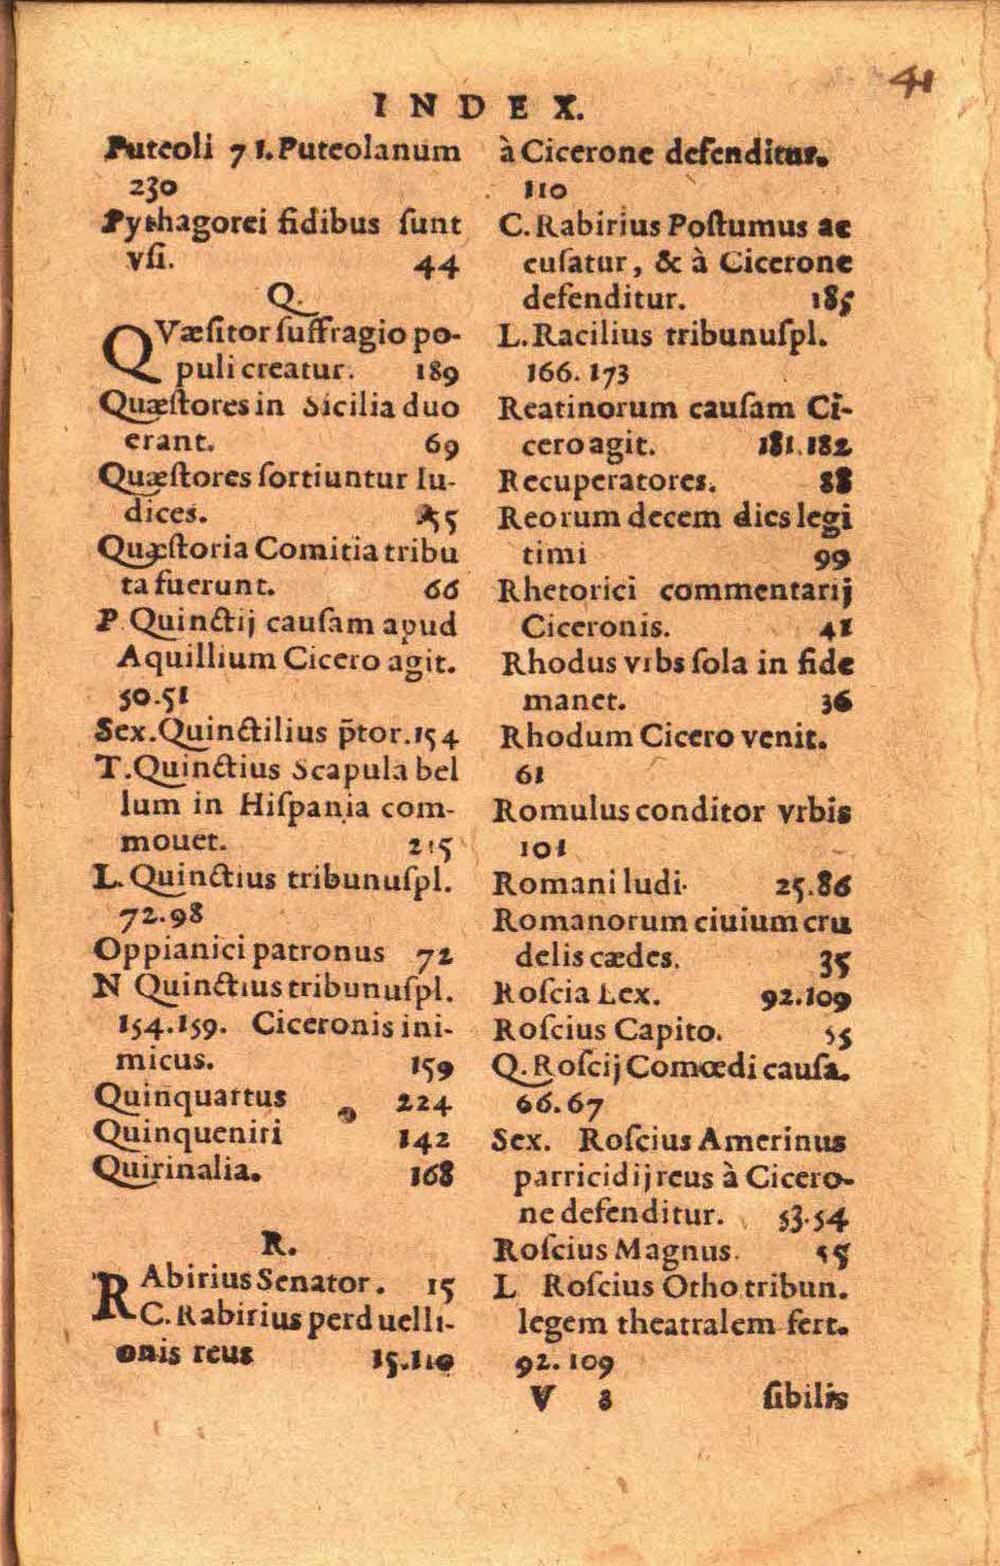 41
INDEX.
Puteoli 71. Puteolanum
230
Pythagorei fidibus ſunt
vſi. 44
Q.
QVæſitor ſuffragio po-
puli creatur. 189
Quæſtores in Sicilia duo
erant. 69
Quæſtores ſortiuntur Iu-
dices. 55
Quæſtoria Comitia tribu
ta fuerunt. 66
P. Quinctij cauſam apud
Aquillium Cicero agit.
50.51
Sex. Quinctilius p̄tor. 154
T. Quinctius Scapula bel
lum in Hiſpania com-
mouet. 215
L. Quinctius tribunuſpl.
72.98
Oppianici patronus 72
N Quinctius tribunuſpl.
154.159. Ciceronis ini-
micus. 159
Quinquartus 224
Quinqueniri 142
Quirinalia. 168
R.
RAbirius Senator. 15
C. Rabirius perduelli-
onis reus 15.110
à Cicerone defenditur.
110
C. Rabirius Poſtumus ac
cuſatur, & à Cicerone
defenditur. 185
L. Racilius tribunuſpl.
166.173
Reatinorum cauſam Ci-
cero agit. 181.182
Recuperatores. 88
Reorum decem dies legi
timi 99
Rhetorici commentarij
Ciceronis. 41
Rhodus vrbs ſola in fide
manet. 36
Rhodum Cicero venit.
61
Romulus conditor vrbis
101
Romani ludi. 25.86
Romanorum ciuium cru
delis cædes. 35
Roſcia Lex. 92.109
Roſcius Capito. 55
Q. Roſcij Comœdi cauſa.
66.67
Sex. Roſcius Amerinus
parricidij reus à Cicero-
ne defenditur. 53.54
Roſcius Magnus. 55
L Roſcius Otho tribun.
legem theatralem fert.
92.109
V 3 ſibilis